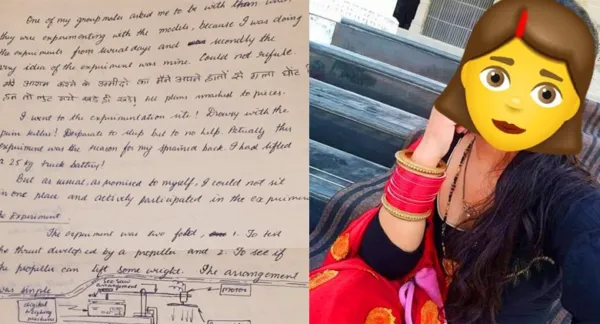 One of my groupmates asked me to be with them
they were experimenting with the models, because I was doing
the experiments from several days and secondly the
very idea of the experiment was mine. Could not refuse!
आराम करने के उम्मीदों का मैंने अपने हाथों से गला घोंट
हम तो लुट गये खड़े ही खड़े! My plans smashed to pieces.
I went to the experimentation site! Drowsy with the
pain killer! Desperate to sleep but to no help. Actually this
experiment was the reason for my sprained back. I had lifted
a 25 kg truck battery!
But as usual, as promised to myself, I could not sit
in one place and actively participated in the experiment
The Experiment
The experiment was two fold, 1. To test
the thrust developed by a propeller and 2. To see if
the propeller can lift some weight. The arrangement
was simple
see saw
arrangement
MOTOR
digital
weighing
machine